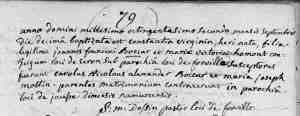 79
anno domini millesimo octingentesimo secundo mensis septembris
die decima baptizata est constantia virginia heri nata filia
legitima joannis francisci Boseur et maria victoria homont con
jugum loci de seron sub parochia loci de forville susceptores
fuerunt carolus nicolaus alexander Boseur et maria joseph
mottin parentes matrimonium contraxerunt in parochia
loci de jausse dioecesis namurcensis
pastor loci de forville